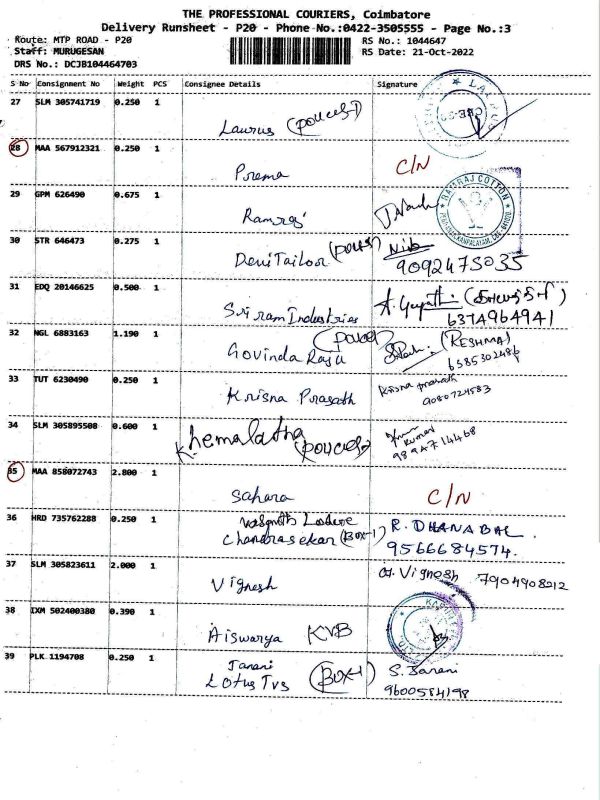 THE PROFESSIONAL COURIERS, Coimbatore
Delivery Runsheet - P20 - Phone No.:0422-3505555 - Page No.:3
Route: MTP ROAD - P20
RS No.: 1044647
Staff: MURUGESAN
RS Date: 21-Oct-2022
DRS No.: DCJB104464703
S No Consignment No Weight PCS Consignee Details Signature
27 SLM 305741719 0.250 1
Laurus
28 MAA 567912321 0.250 1
Prema C/N
29 GPM 626490 0.675 1
Ramraj
RAMRAJ COTTON
30 STR 646473 0.275 1
Devi Tailor
9092475035
31 EDQ 20146625 0.500 1
Sri ram Industries
6374964941
32 NGL 6883163 1.190 1
Govinda Raju (RESHMA)
6585302486
33 TUT 6230490 0.250 1
Krisna Prasath Krisna prasath
9080724583
34 SLM 305895508 0.600 1
K. hemalatha Kumar
9894714468
35 MAA 858072743 2.800 1
Sahara C/N
36 HRD 735762288 0.250 1
Chandrasekar (BOX-1) R. DHANABAL.
9566684574.
37 SLM 305823611 2.000 1
Vignesh Vignesh 7904908212
38 IXM 502400380 0.390 1
Aiswarya KVB
39 PLK 1194708 0.250 1
Janani
Lotus Tvs (BOX-1) S. Janani
9600584198